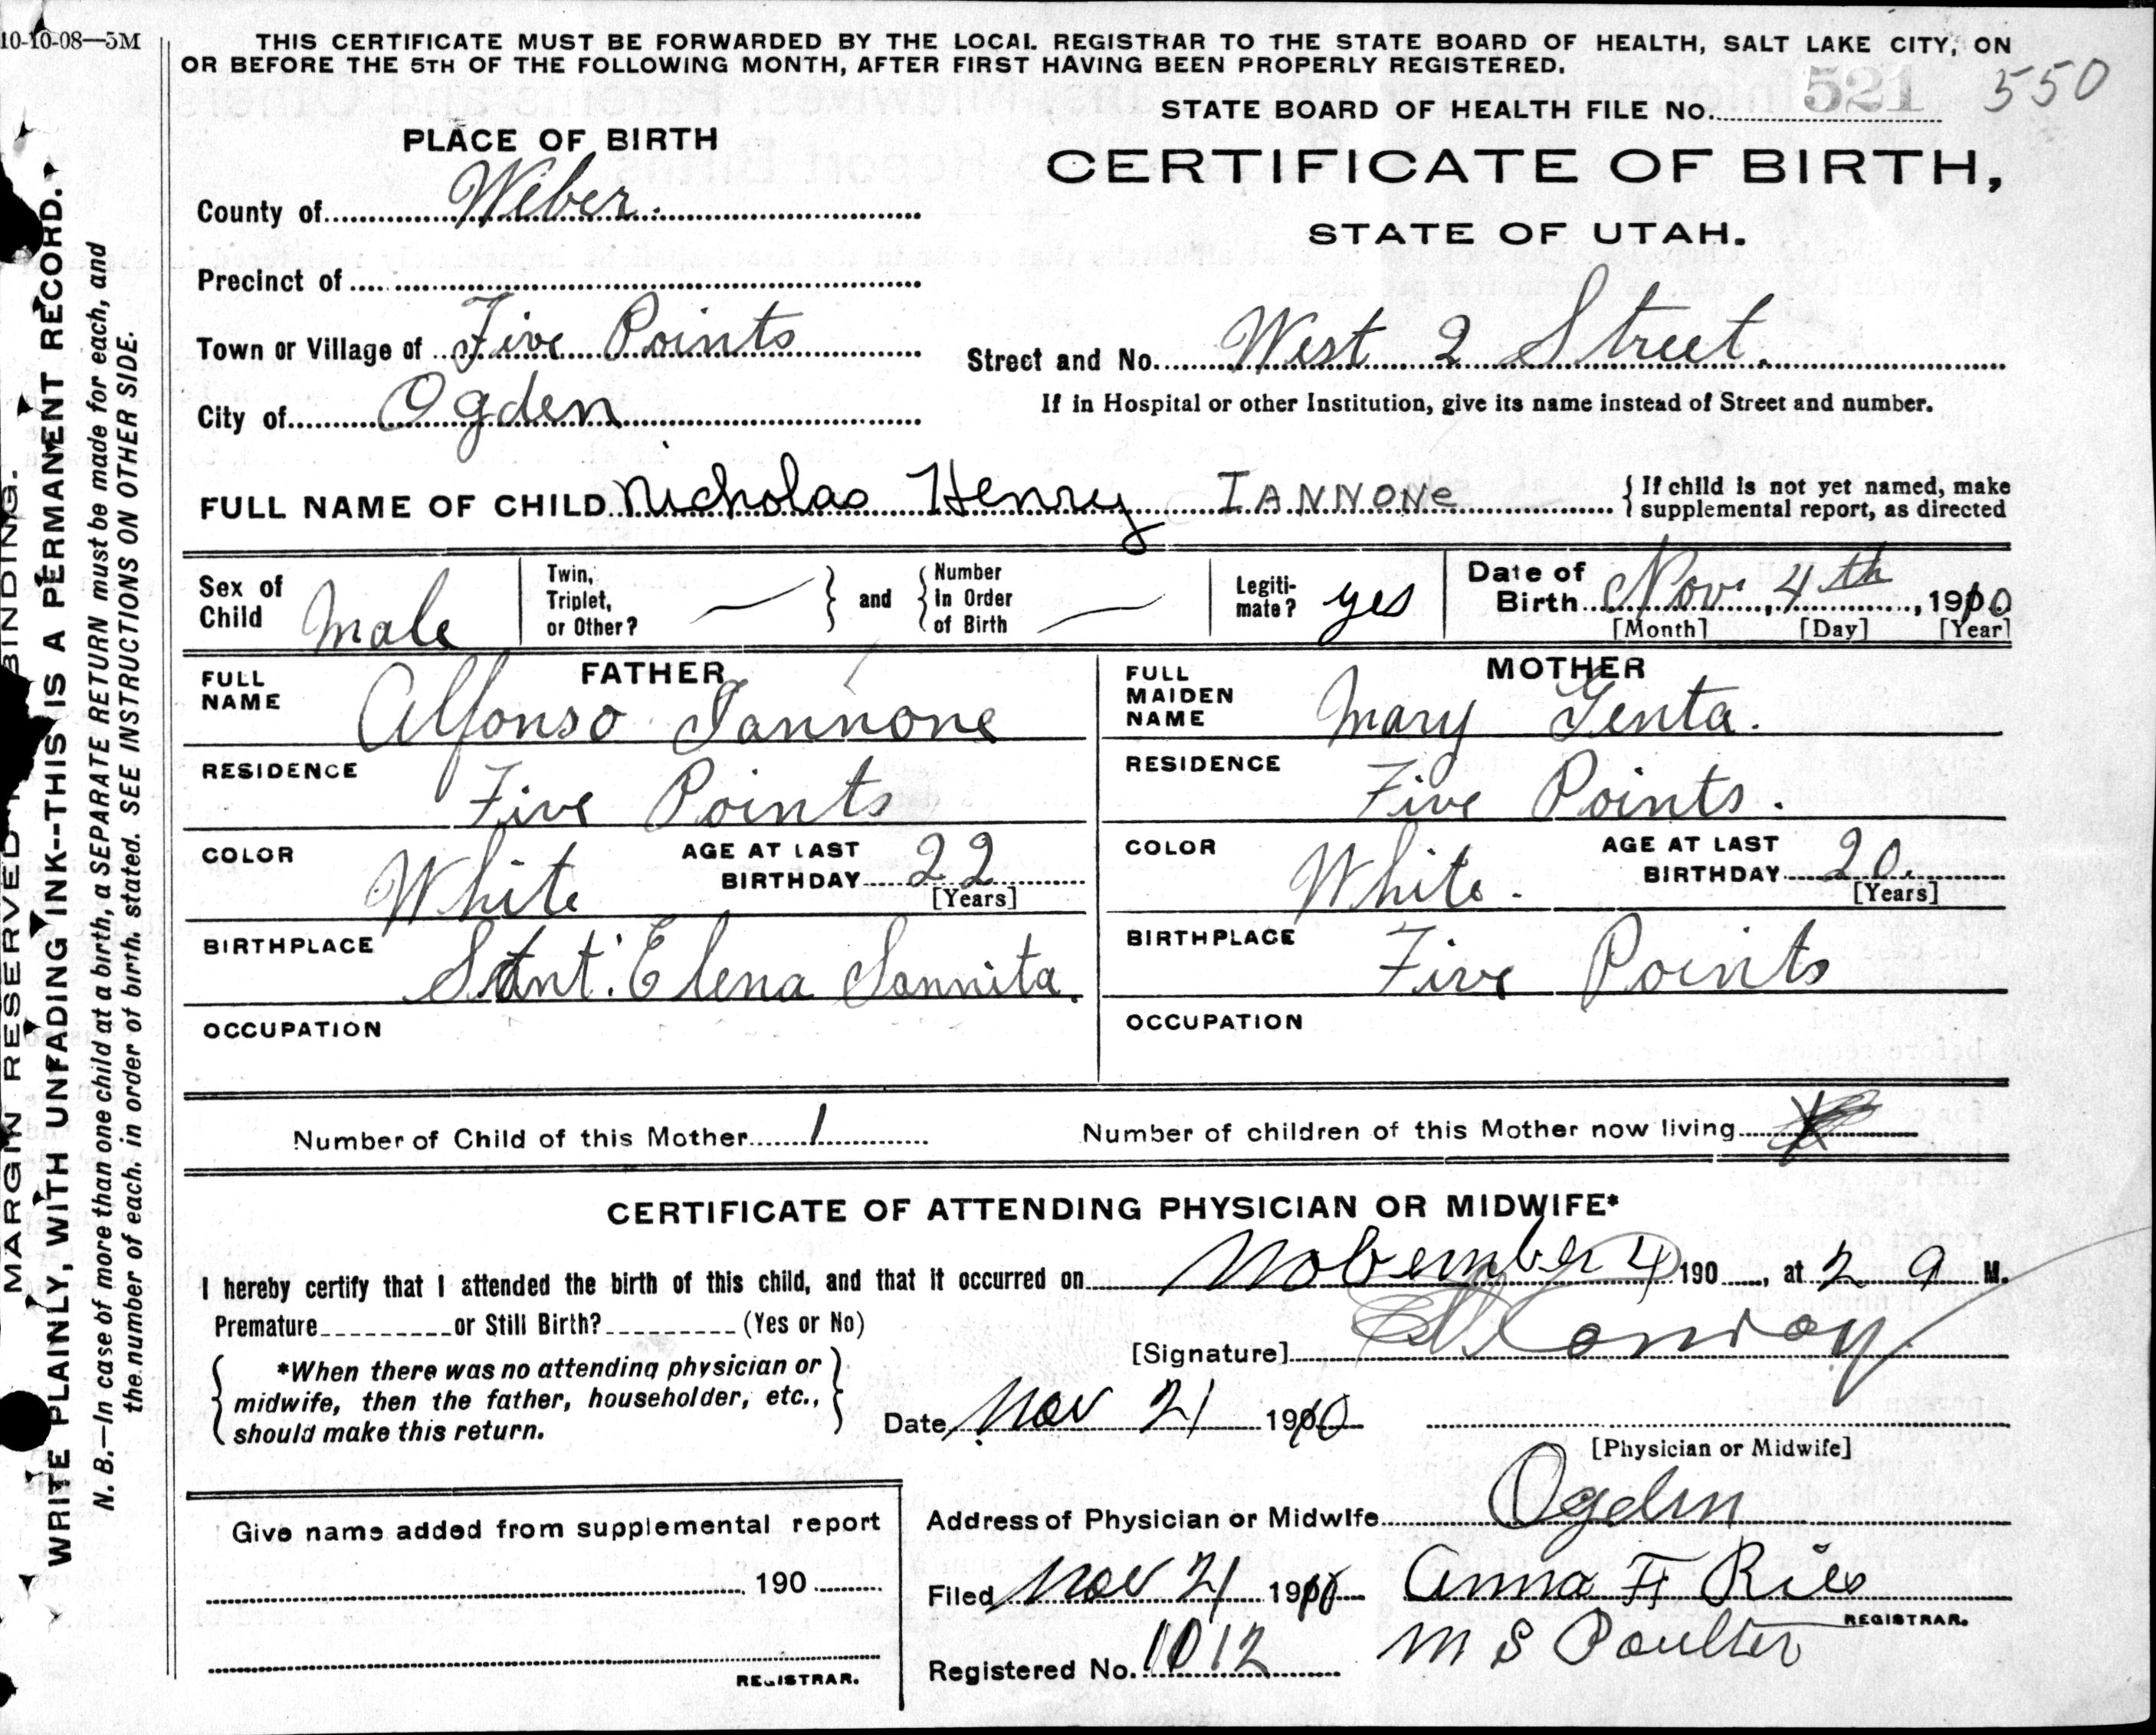 10-10-08—5M
THIS CERTIFICATE MUST BE FORWARDED BY THE LOCAL REGISTRAR TO THE STATE BOARD OF HEALTH, SALT LAKE CITY, ON
OR BEFORE THE 5TH OF THE FOLLOWING MONTH, AFTER FIRST HAVING BEEN PROPERLY REGISTERED.
STATE BOARD OF HEALTH FILE No. 521 550
PLACE OF BIRTH
CERTIFICATE OF BIRTH,
STATE OF UTAH.
County of Weber.
Precinct of
Town or Village of Five Points
Street and No. West 2 Street.
City of Ogden
If in Hospital or other Institution, give its name instead of Street and number.
FULL NAME OF CHILD Nicholas Henry IANNONE
{ If child is not yet named, make
supplemental report, as directed
Sex of Child Male
Twin, Triplet, or Other? — } and { Number in Order of Birth —
Legiti-mate? yes
Date of Birth Nov. 4th, 1910
[Month] [Day] [Year]
FATHER
FULL NAME Alfonso Iannone
RESIDENCE Five Points
COLOR White AGE AT LAST BIRTHDAY 22
[Years]
BIRTHPLACE Sant' Elena Sannita.
OCCUPATION
MOTHER
FULL MAIDEN NAME Mary Genta.
RESIDENCE Five Points.
COLOR White. AGE AT LAST BIRTHDAY 20.
[Years]
BIRTHPLACE Five Points
OCCUPATION
Number of Child of this Mother 1 Number of children of this Mother now living
CERTIFICATE OF ATTENDING PHYSICIAN OR MIDWIFE*
I hereby certify that I attended the birth of this child, and that it occurred on November 4 190 , at 2 a M.
Premature or Still Birth? (Yes or No)
[Signature] Conroy
{ *When there was no attending physician or
midwife, then the father, householder, etc.,
should make this return. }
Date Nov 21 1910
[Physician or Midwife]
Address of Physician or Midwife Ogden
Filed Nov 21 1910 Anna F Ries
REGISTRAR.
Registered No. 1012 M S Poulter
Give name added from supplemental report
190
REGISTRAR.
MARGIN RESERVED BINDING.
WRITE PLAINLY, WITH UNFADING INK--THIS IS A PERMANENT RECORD.
N. B.—In case of more than one child at a birth, a SEPARATE RETURN must be made for each, and
the number of each. in order of birth. stated. SEE INSTRUCTIONS ON OTHER SIDE.